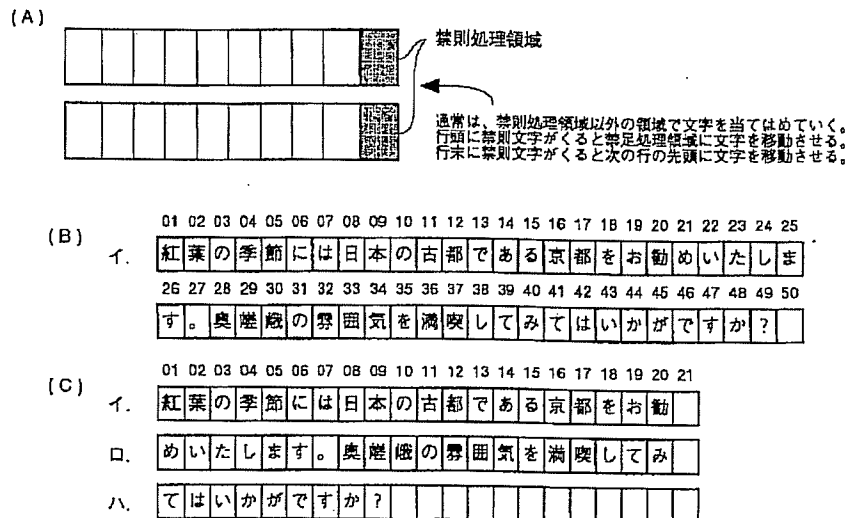 (A)
禁則処理領域
通常は、禁則処理領域以外の領域で文字を当てはめていく。
行頭に禁則文字がくると禁足処理領域に文字を移動させる。
行末に禁則文字がくると次の行の先頭に文字を移動させる。
01 02 03 04 05 06 07 08 09 10 11 12 13 14 15 16 17 18 19 20 21 22 23 24 25
(B)
イ. 紅葉の季節には日本の古都である京都をお勧めいたしま
26 27 28 29 30 31 32 33 34 35 36 37 38 39 40 41 42 43 44 45 46 47 48 49 50
す。奥嵯峨の雰囲気を満喫してみてはいかがですか？
01 02 03 04 05 06 07 08 09 10 11 12 13 14 15 16 17 18 19 20 21
(C)
イ. 紅葉の季節には日本の古都である京都をお勧
ロ. めいたします。奥嵯峨の雰囲気を満喫してみ
ハ. てはいかがですか？